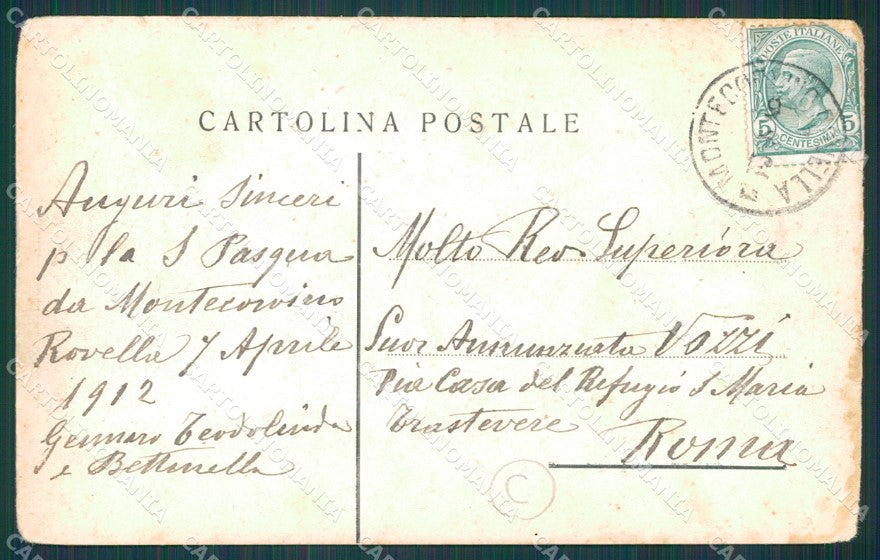 CARTOLINA POSTALE
POSTE ITALIANE
5 5
CENTESIMI
MONTECORVINO ROVELLA
Auguri sinceri
p la S Pasqua
da Montecorvino
Rovella 7 Aprile
1912
Gennaro Teodolinda
e Bettinella
Molto Rev Superióra
Suor Annunziata Vozzi
Pia Casa del Refugio S Maria
Trastevere
Roma
C
CARTOLINOMANIA